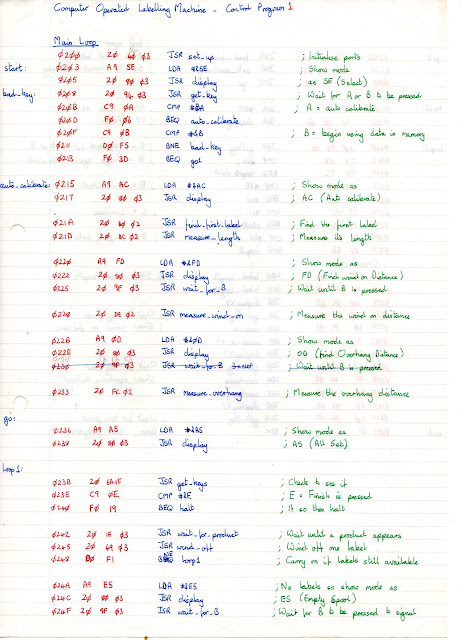 Computer Operated Labelling Machine - Control Program 1
Main Loop
Ø2ØØ 2Ø 4Ø Ø3 JSR set-up ; Initialise ports
start: Ø2Ø3 A9 5E LDA #&5E ; Show mode
Ø2Ø5 2Ø 8Ø Ø3 JSR display ; as SE (Select)
bad-key: Ø2Ø8 2Ø 94 Ø3 JSR get-key ; Wait for A or B to be pressed
Ø2ØB C9 ØA CMP #&A ; A = auto calibrate
Ø2ØD FØ Ø6 BEQ auto_calibrate
Ø2ØF C9 ØB CMP #&B ; B = begin using data in memory
Ø211 DØ F5 BNE bad-key
Ø213 FØ 3D BEQ go1
auto_calibrate: Ø215 A9 AC LDA #&AC ; Show mode as
Ø217 2Ø 8Ø Ø3 JSR display ; AC (Auto calibrate)
Ø21A 2Ø 8Ø Ø2 JSR find-first-label ; Find the first label
Ø21D 2Ø BC Ø2 JSR measure_length ; Measure its length
Ø22Ø A9 FD LDA #&FD ; Show mode as
Ø222 2Ø 8Ø Ø3 JSR display ; FD (Find wind on Distance)
Ø225 2Ø 9F Ø3 JSR wait_for_B ; Wait until B is pressed
Ø228 2Ø DE Ø2 JSR measure_wind_on ; Measure the wind on distance
Ø22B A9 ØD LDA #&ØD ; Show mode as
Ø22D 2Ø 8Ø Ø3 JSR display ; OD (find Overhang Distance)
Ø23Ø 2Ø 9F Ø3 JSR wait_for_B ; Wait until B is pressed
Ø233 2Ø FC Ø2 JSR measure_overhang ; Measure the overhang distance
go:
Ø236 A9 A5 LDA #&A5 ; Show mode as
Ø238 2Ø 8Ø Ø3 JSR display ; AS (All Set)
loop1:
Ø23B 2Ø 6A 1F JSR get-keys ; Check to see if
Ø23E C9 ØE CMP #&E ; E = Finish is pressed
Ø24Ø FØ 19 BEQ halt ; If so then halt
Ø242 2Ø 1E Ø3 JSR wait_for_product ; Wait until a product appears
Ø245 2Ø 69 Ø3 JSR wind_off ; Wind off one label
Ø248 DØ F1 BNE loop1 ; Carry on if labels still available
Ø24A A9 E5 LDA #&E5 ; No labels so show mode as
Ø24C 2Ø 8Ø Ø3 JSR display ; ES (Empty Spool)
Ø24F 2Ø 9F Ø3 JSR wait_for_B ; Wait for B to be pressed to signal